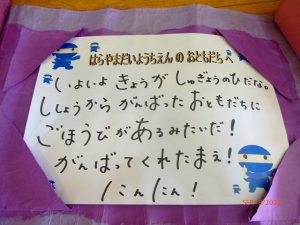 はらやまだいようちえん の おともだちへ
いよいよ きょうが しゅぎょうのひだな。
ししょうから がんばった おともだちに
ごほうびが あるみたいだ！
がんばってくれたまえ！
にんにん！